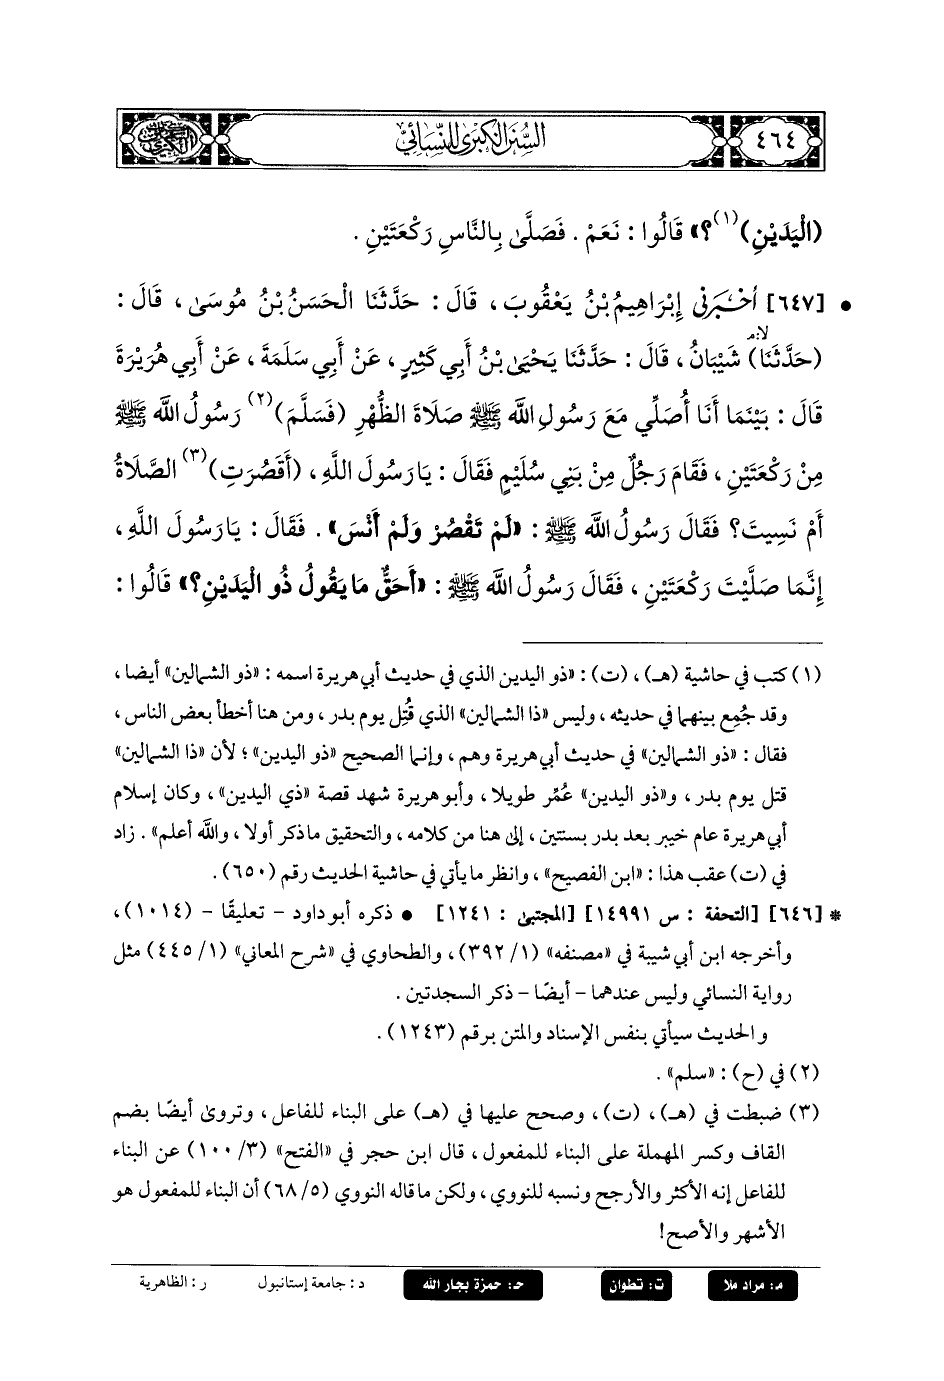 ٤٦٤
السُّنَنُ الْكِبَرَىٰ لِلنِّسَائِيِّ
(الْيَدَيْنِ)(١)؟» قَالُوا : نَعَمْ . فَصَلَّىٰ بِالنَّاسِ رَكْعَتَيْنِ .
• [٦٤٧] أَخْبَرَنِي إِبْرَاهِيمُ بْنُ يَعْقُوبَ ، قَالَ : حَدَّثَنَا الْحَسَنُ بْنُ مُوسَىٰ ، قَالَ :
(حَدَّثَنَا) شَيْبَانُ ، قَالَ : حَدَّثَنَا يَحْيَىٰ بْنُ أَبِي كَثِيرٍ ، عَنْ أَبِي سَلَمَةَ ، عَنْ أَبِي هُرَيْرَةَ
قَالَ : بَيْنَمَا أَنَا أُصَلِّي مَعَ رَسُولِ اللَّه ﷺ صَلَاةَ الظُّهْرِ (فَسَلَّمَ)(٢) رَسُولُ اللَّه ﷺ
مِنْ رَكْعَتَيْنِ ، فَقَامَ رَجُلٌ مِنْ بَنِي سُلَيْمٍ فَقَالَ : يَا رَسُولَ اللَّهِ ، (أَقَصُرَتِ)(٣) الصَّلَاةُ
أَمْ نَسِيتَ؟ فَقَالَ رَسُولُ اللَّه ﷺ : «لَمْ تَقْصُرْ وَلَمْ أَنْسَ» . فَقَالَ : يَا رَسُولَ اللَّهِ ،
إِنَّمَا صَلَّيْتَ رَكْعَتَيْنِ ، فَقَالَ رَسُولُ اللَّه ﷺ : «أَحَقٌّ مَا يَقُولُ ذُو الْيَدَيْنِ؟» قَالُوا :
(١) كتب في حاشية (هـ) ، (ت) : «ذو اليدين الذي في حديث أبي هريرة اسمه : «ذو الشمالين» أيضا ،
وقد جُمِع بينهما في حديثه ، وليس «ذا الشمالين» الذي قُتِل يوم بدر ، ومن هنا أخطأ بعض الناس ،
فقال : «ذو الشمالين» في حديث أبي هريرة وهم ، وإنما الصحيح «ذو اليدين» ؛ لأن «ذا الشمالين»
قتل يوم بدر ، و«ذو اليدين» عُمِّر طويلا ، وأبو هريرة شهد قصة «ذي اليدين» ، وكان إسلام
أبي هريرة عام خيبر بعد بدر بسنتين ، إلى هنا من كلامه ، والتحقيق ما ذكر أولا ، والله أعلم» . زاد
في (ت) عقب هذا : «ابن الفصيح» ، وانظر ما يأتي في حاشية الحديث رقم (٦٥٠) .
* [٦٤٦] [التحفة : س ١٤٩٩١] [المجتبى : ١٢٤١] • ذكره أبو داود - تعليقًا - (١٠١٤) ،
وأخرجه ابن أبي شيبة في «مصنفه» (١/ ٣٩٢) ، والطحاوي في «شرح المعاني» (١/ ٤٤٥) مثل
رواية النسائي وليس عندهما - أيضًا - ذكر السجدتين .
والحديث سيأتي بنفس الإسناد والمتن برقم (١٢٤٣) .
(٢) في (ح) : «سلم» .
(٣) ضبطت في (هـ) ، (ت) ، وصحح عليها في (هـ) على البناء للفاعل ، وتروىٰ أيضًا بضم
القاف وكسر المهملة على البناء للمفعول ، قال ابن حجر في «الفتح» (٣/ ١٠٠) عن البناء
للفاعل إنه الأكثر والأرجح ونسبه للنووي ، ولكن ما قاله النووي (٥/ ٦٨) أن البناء للمفعول هو
الأشهر والأصح!
م: مراد ملا ت: تطوان حـ: حمزة بجار الله د: جامعة إستانبول ر: الظاهرية